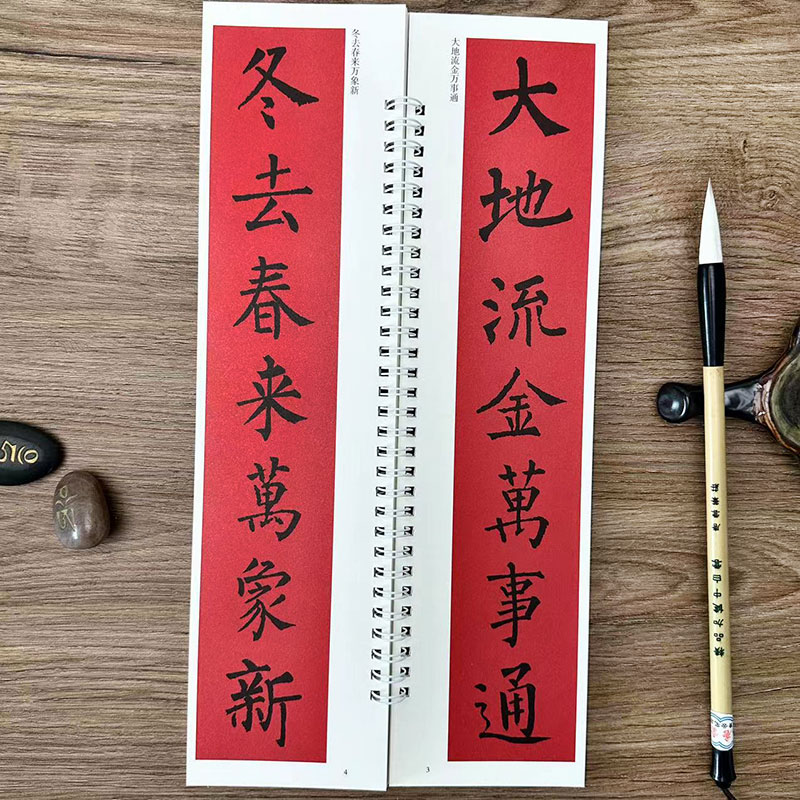 大地流金萬事通
大地流金万事通
3
冬去春来萬象新
冬去春来万象新
4
精品加健中白雲